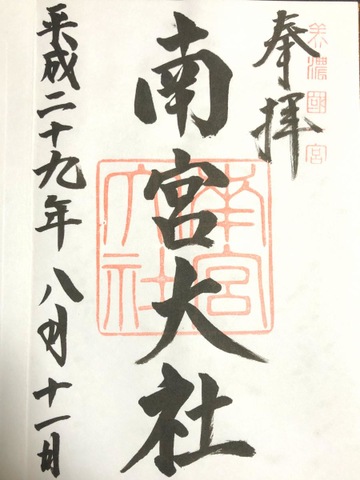 美濃國宮
奉拝
南宮大社
南宮大社
平成二十九年 八月十一日